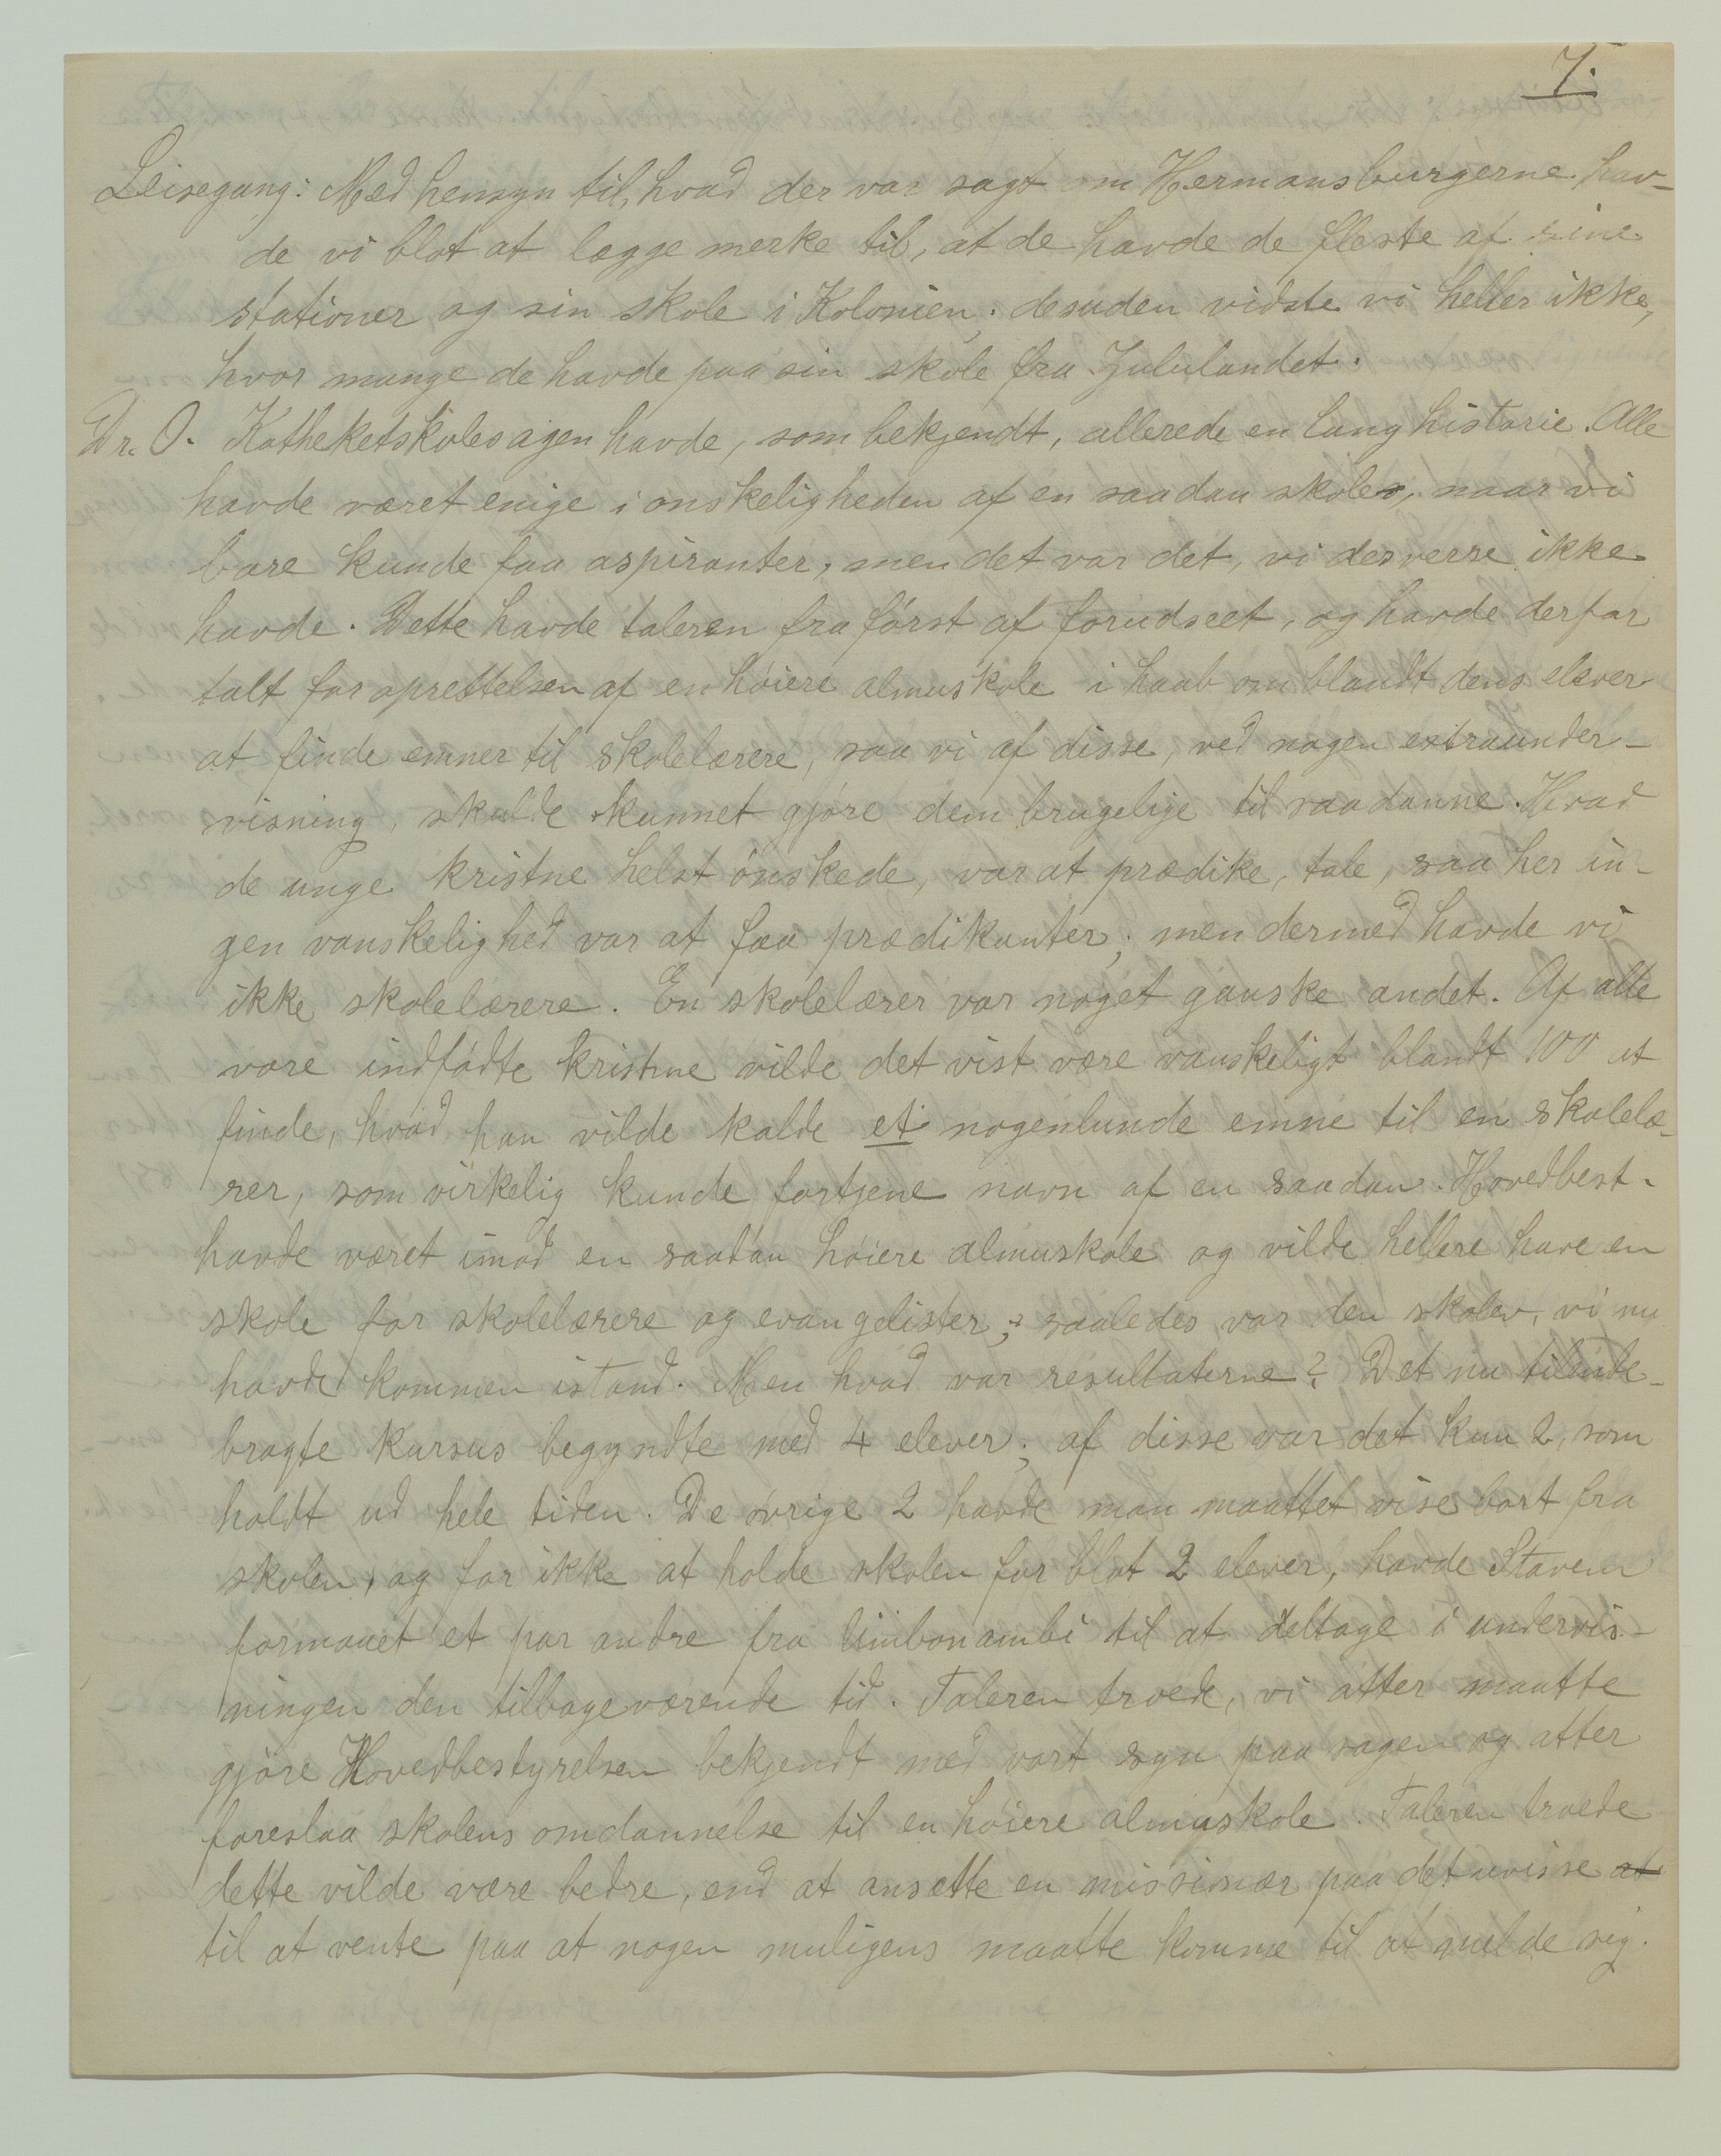 7.
Leisegang: Med hensyn til, hvad der var sagt om Hermansburgerne hav-
de vi blot at lægge merke til, at de havde de fleste af sine
stationer og sin skole i Kolonien; desuden vidste vi heller ikke,
hvor mange de havde paa sin skole fra Zululandet.
Dr. O. Katheketskolesagen havde, som bekjendt, allerede en lang historie. Alle
havde været enige i onskeligheden af en saadan skole, naar vi
bare kunde faa aspiranter, men det var det, vi desverre ikke
havde. Dette havde taleren fra først af forudseet, og havde derfor
talt for oprettelsen af en høiere almuskole i haab om blandt dens elever
at finde emner til skolelærere, saa vi af disse, ved nogen extraunder-
visning, skulde kunnet gjøre dem brugelige til saadanne. Hvad
de unge kristne helst ønskede, var at prædike, tale, saa her in-
gen vanskelighed var at faa prædikanter; men dermed havde vi
ikke skolelærere. En skolelærer var noget ganske andet. Af alle
vore indfødte kristne vilde det vist være vanskeligt blandt 100 at
finde, hvad han vilde kalde et nogenlunde emne til en skolelæ-
rer, som virkelig kunde fortjene navn af en saadan. Hovedbest.
havde været imod en saadan høiere almuskole og vilde hellere have en
skole for skolelærere og evangelister; saaledes var den skolen, vi nu
havde kommen istand. Men hvad var resultaterne? Det nu tilende-
bragte kursus begyndte med 4 elever; af disse var det kun 2, som
holdt ud hele tiden. De øvrige 2 havde man maattet vise bort fra
skolen, og for ikke at holde skolen for blot 2 elever, havde Stavem
formaaet et par andre fra Umbonambi til at deltage i undervis-
ningen den tilbageværende tid. Taleren troede, vi atter maatte
gjøre Hovedbestyrelsen bekjendt med vort syn paa sagen og atter
foreslaa skolens omdannelse til en høiere almuskole. Taleren troede
dette vilde være bedre, end at ansette en missionær paa det uvisse at
til at vente paa at nogen muligens maatte komme til at melde sig.